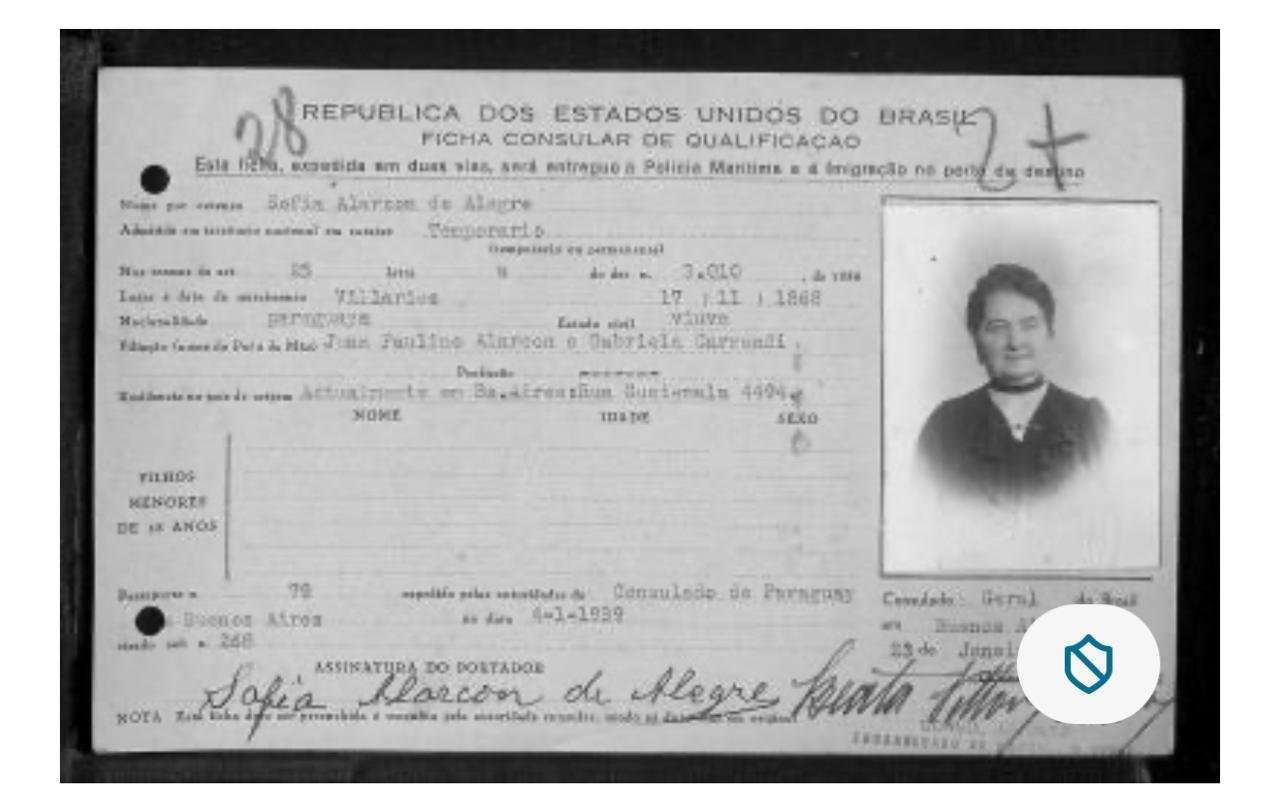 28
REPUBLICA DOS ESTADOS UNIDOS DO BRASIL
FICHA CONSULAR DE QUALIFICAÇAO
Esta ficha, expedida em duas vias, será entregue á Policia Maritima e á Imigração no porto de destino
Nome por extenso Sofia Alarcon de Alegre
Admitido em territorio nacional em carater Temporario
(temporario ou permanente)
Nos termos do art. 25 letra do dec. n. 3.010 , de 1938
Lugar e data de nascimento Villarica 17 / 11 / 1868
Nacionalidade paraguaya Estado civil viuva
Filiação (nome do Pai e da Mãe) Juan Paulino Alarcon e Gabriela
Profissão
Residencia no país de origem Actualmente en Bs.Aires: Guatemala 4494
NOME IDADE SEXO
FILHOS
MENORES
DE 18 ANOS
Passaporte n. 79 expedido pelas autoridades de Consulado de Paraguay
Buenos Aires na data 4-1-1939
visado sob n. 268
Consulado Geral do Brasil
em Buenos
23 de
ASSINATURA DO PORTADOR
Sofia Alarcon de Alegre
NOTA Esta ficha deve ser preenchida á maquina pela autoridade consular